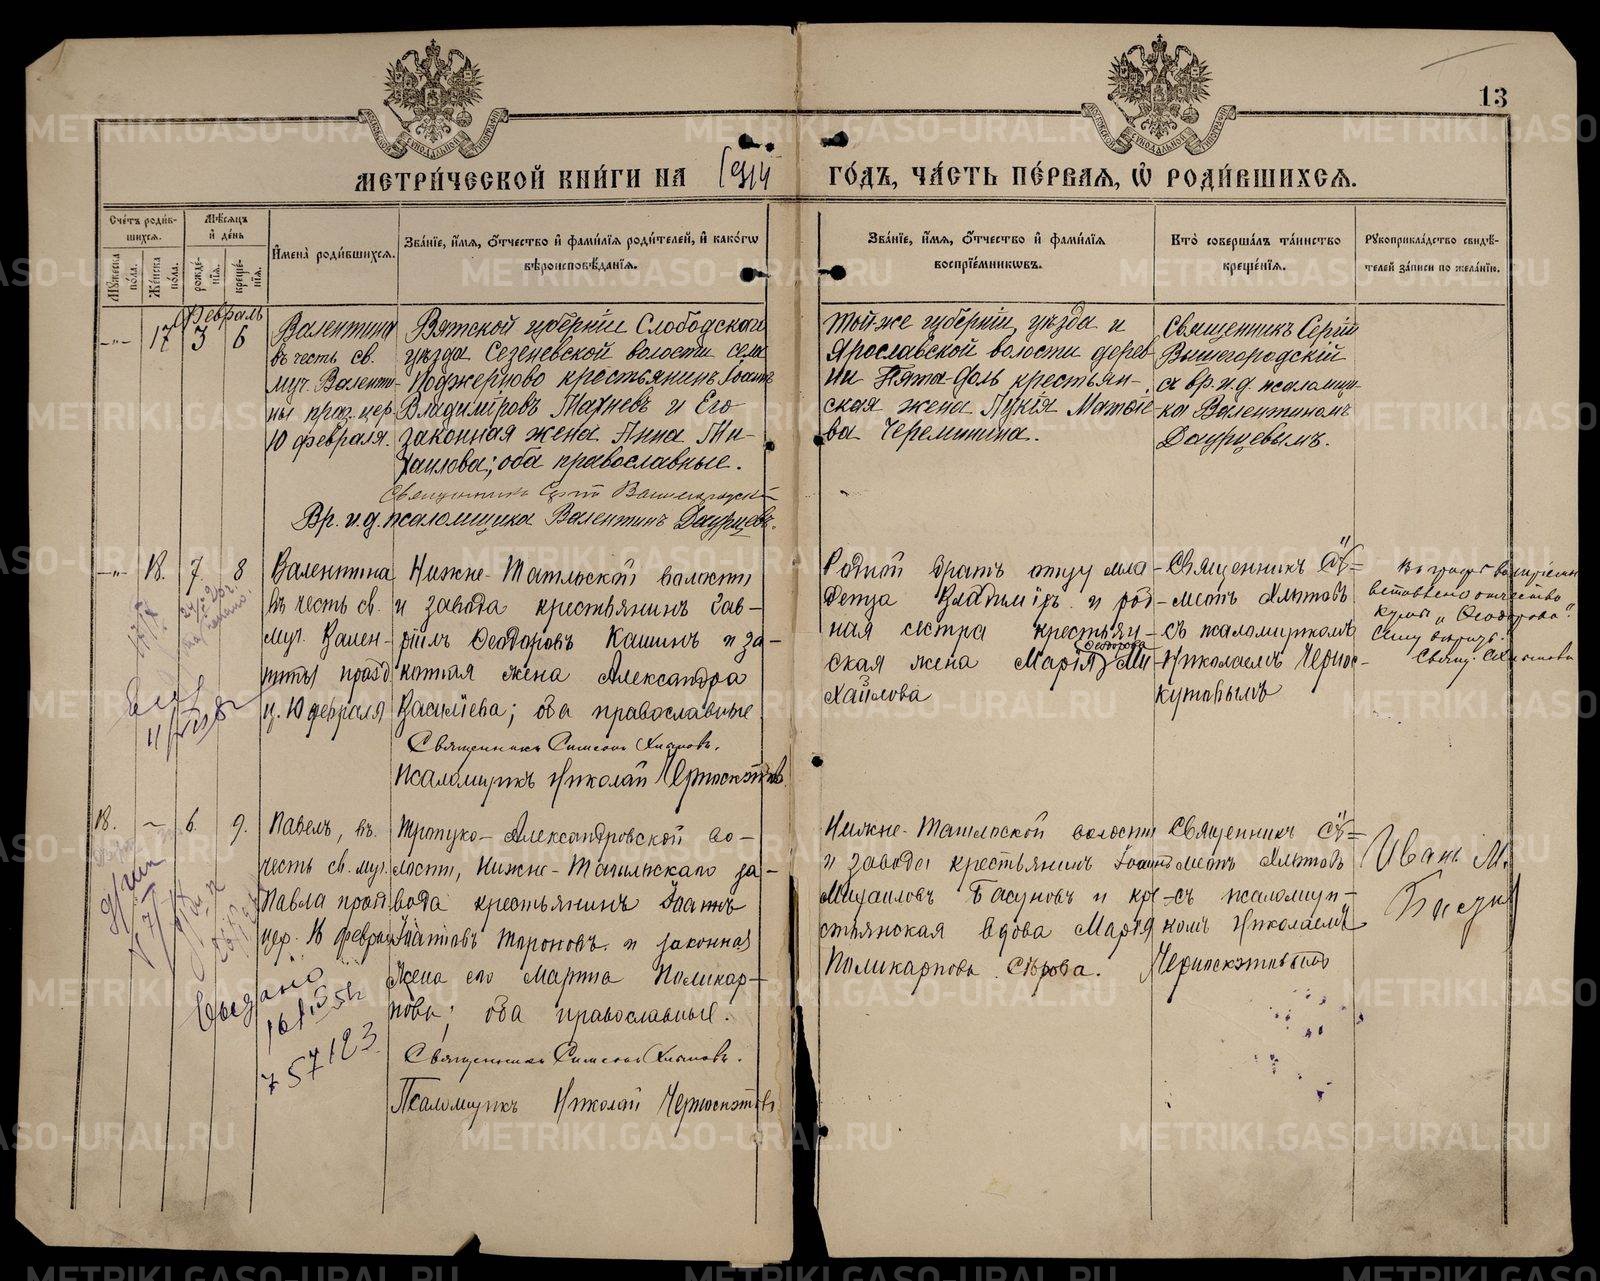 13
МЕТРИ́ЧЕСКОЙ КНИ́ГИ НА 1914 ГО́ДЪ, ЧА́СТЬ ПЕ́РВАѦ, Ѡ҆ РОДИ́ВШИХСѦ.
Счетъ роди́в-
шихсѧ.
Мѣсѧцъ
и҆ де́нь
И҆мена̀ роди́вшихсѧ.
Зва́нїе, и҆́мѧ, ѻ҆́тчество и҆ фами́лїѧ роди́телей, и҆ како́гѡ
вѣроисповѣ́данїѧ.
Зва́нїе, и҆́мѧ, ѻ҆́тчество и҆ фами́лїѧ
воспрїе́мникѡвъ.
Кто̀ соверша́лъ та́инство
креще́нїѧ.
Рꙋкоприкла́дство свидѣ́-
телей за́писи по жела́нїю.
Мꙋ́жеска
по́ла.
Же́нска
по́ла.
рожде́-
нїѧ.
креще́-
нїѧ.
Февраль
-"- 17 3 6
Валентина
въ честь св.
муч. Валенти-
ны праз. цер.
10 февраля.
Вятской губерніи Слободскаго
уѣзда Сезеневской волости села
крестьянинъ Іоаннъ
Владиміровъ и Его
законная жена Анна Ми-
хаилова; оба православные.
Священникъ Сергій Вышегородскій
Вр. и.д. псаломщика Валентинъ Даурцевъ.
Той же губерніи, уѣзда и
Ярославской волости дерев-
ни крестьян-
ская жена Лукія Матѳіе-
ва Черемигина.
Священникъ Сергій
Вышегородскій
съ вр. и.д. псаломщи-
ка Валентиномъ
Даурцевымъ.
-"- 18. 7. 8
Валентина
въ честь св.
муч. Вален-
тины празд.
ц. 10 февраля
Нижне-Тагильской волости
и завода крестьянинъ Гав-
ріилъ Ѳеодоровъ Кашинъ и за-
конная жена Александра
Василіева; оба православные
Священникъ Симеонъ Хлыновъ.
Псаломщикъ Николай Черноскутовъ
Родной братъ отцу мла-
денца Владиміръ и род-
ная сестра крестьян-
Ѳеодорова
ская жена Марія Ми-
хаилова
Священникъ Си-
меонъ Хлыновъ
съ псаломщикомъ
Николаемъ Чернос-
кутовымъ
Въ графѣ
вставлено отчество
"Ѳеодорова".
Свящ. С. Хлыновъ
18. - 6. 9.
Павелъ, въ
честь св. муч.
Павла празд.
цер. 16 февраля
Троицко-Александровской во-
лости, Нижне-Тагильскаго за-
вода крестьянинъ Іоаннъ
Іоанновъ Мироновъ и законная
жена его Марина Поликар-
пова; оба православные.
Священникъ Симеонъ Хлыновъ.
Псаломщикъ Николай Черноскутовъ
Нижне-Тагильской волости
и завода крестьянинъ Іоаннъ
Михаиловъ Басуновъ и кре-
стьянская вдова Марія
Поликарпова Сѣрова.
Священникъ Си-
меонъ Хлыновъ
съ псаломщи-
комъ Николаемъ
Черноскутовымъ
Иванъ М.
Выдано
757123